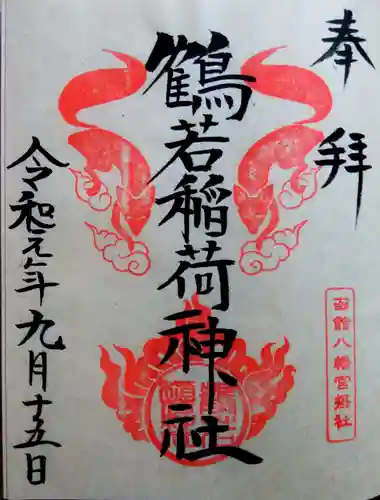 奉拝
鶴若稲荷神社
令和元年九月十五日
函館八幡宮務社